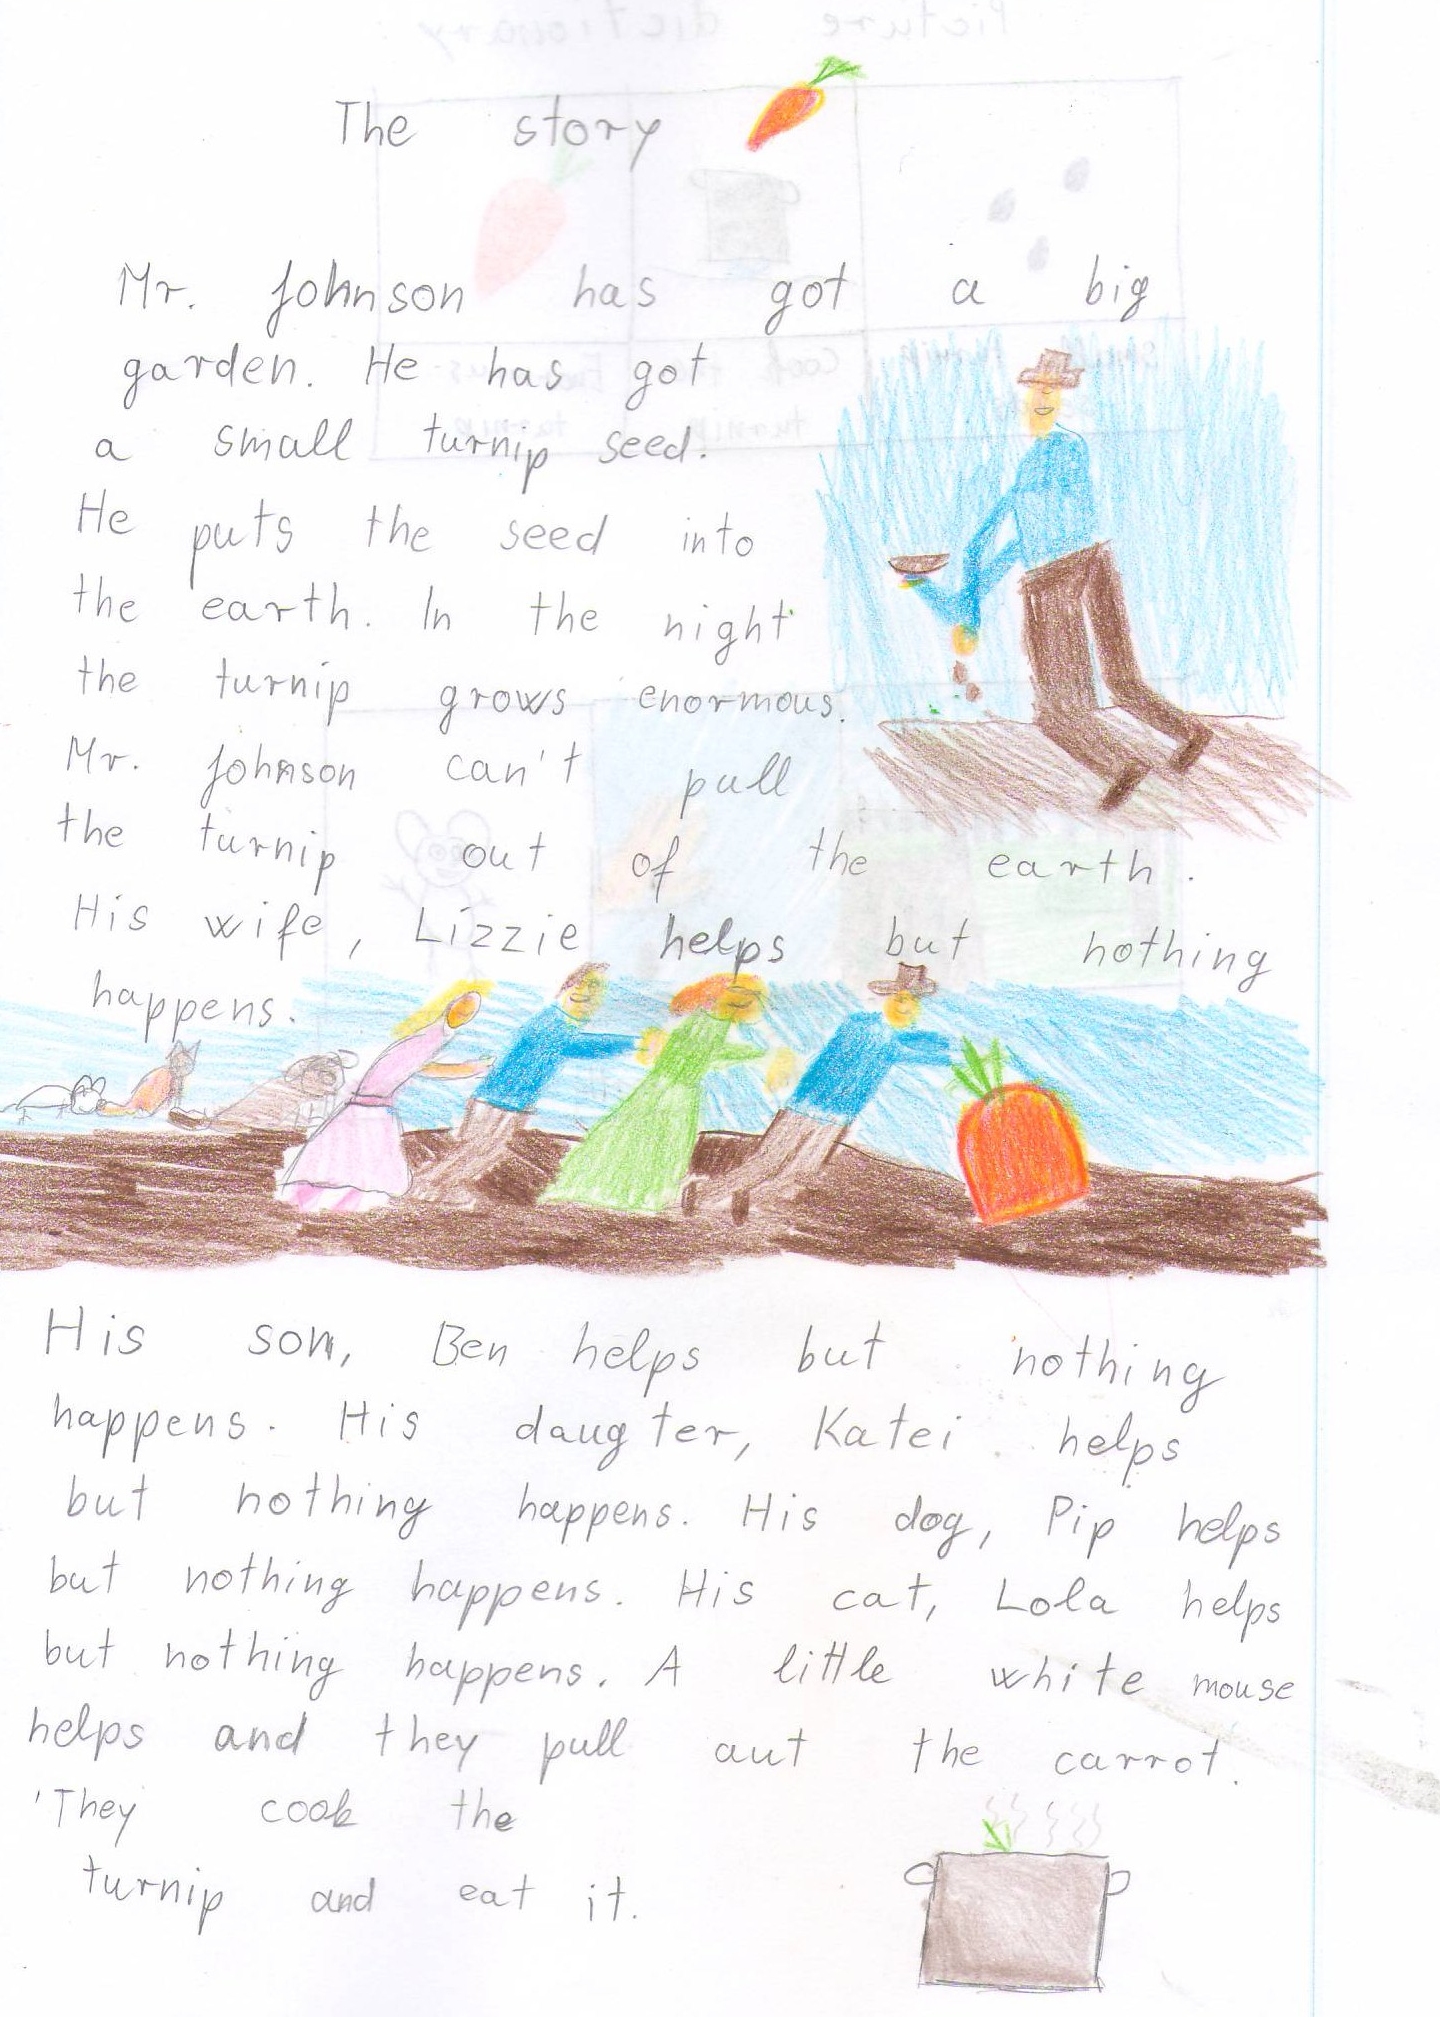 The story
Mr. Johnson has got a big
garden. He has got
a small turnip seed.
He puts the seed into
the earth. In the night
the turnip grows enormous.
Mr. Johnson can't pull
the turnip out of the earth.
His wife, Lizzie helps but nothing
happens.
His son, Ben helps but nothing
happens. His daugter, Katei helps
but nothing happens. His dog, Pip helps
but nothing happens. His cat, Lola helps
but nothing happens. A little white mouse
helps and they pull aut the carrot.
'They cook the
turnip and eat it.